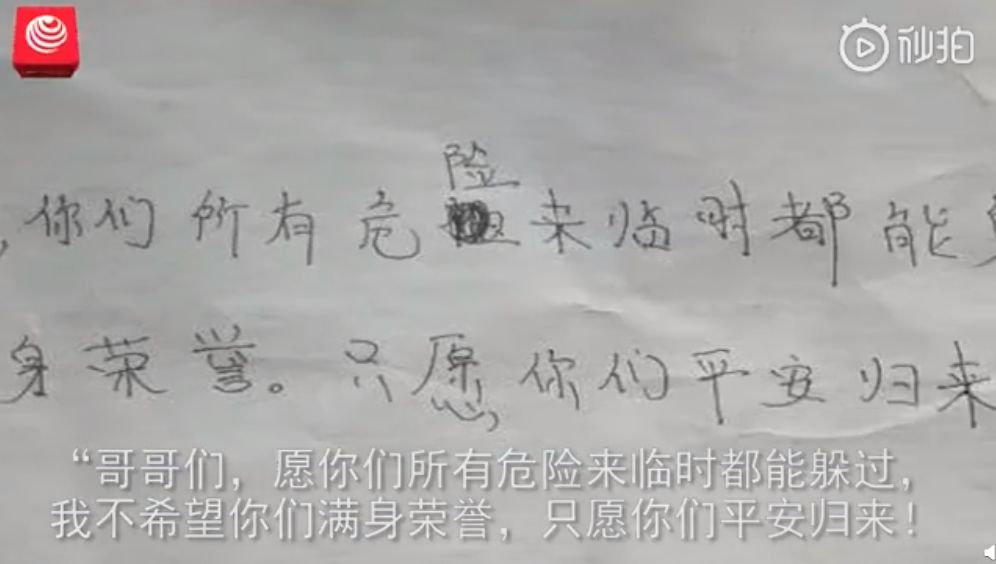 秒拍
险
，你们所有危来临时都能
身荣誉。只愿你们平安归来
“哥哥们，愿你们所有危险来临时都能躲过，
我不希望你们满身荣誉，只愿你们平安归来！